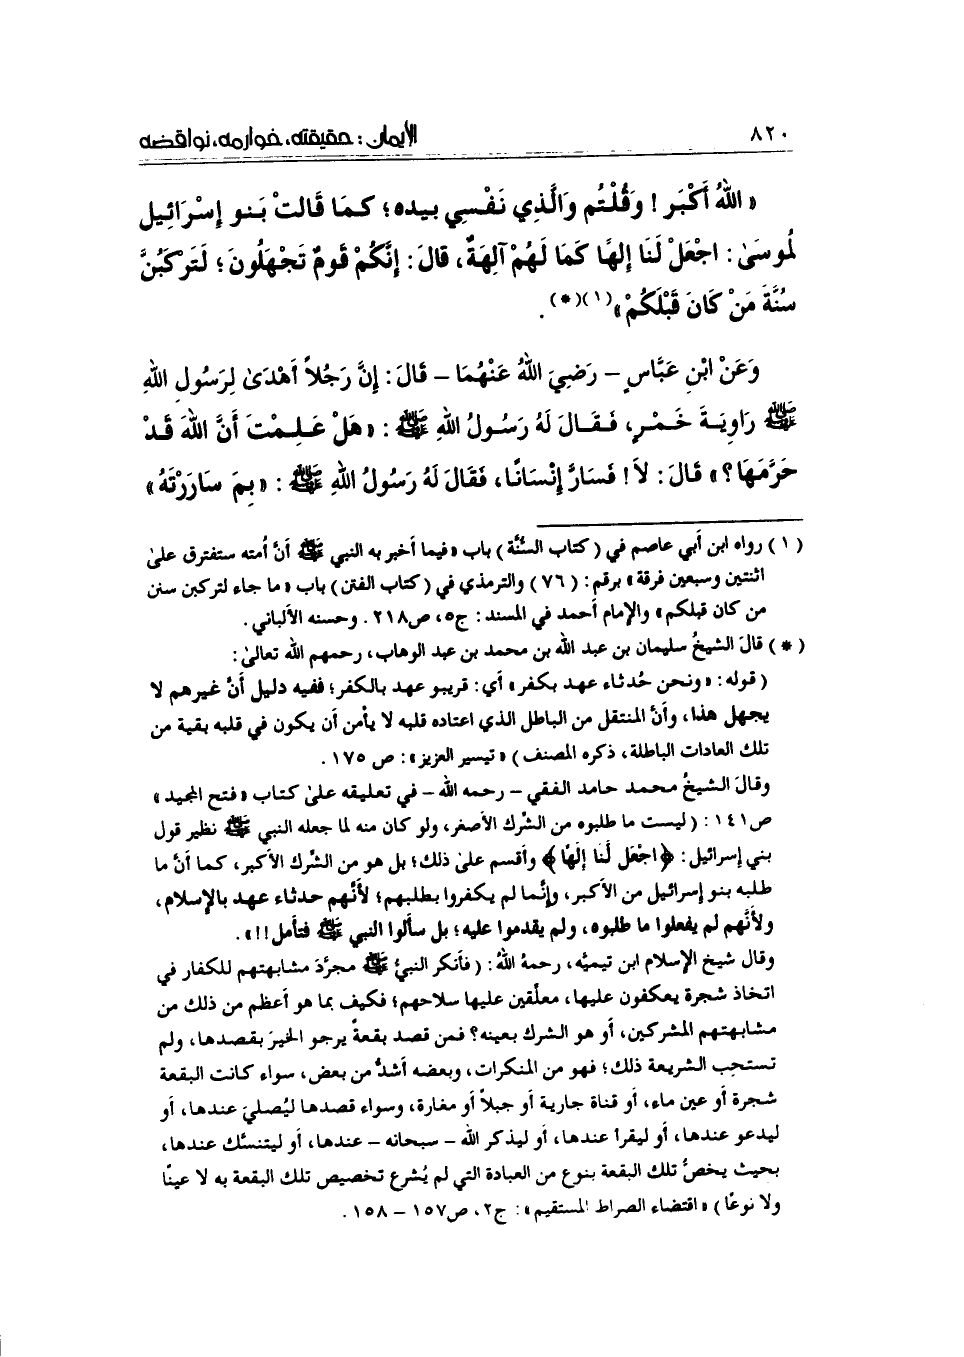 ٨٢٠ الإيمان : حقيقته، خوارمه، نواقضه
« اللهُ أَكْبَر ! وَقُلْتُم وَالَّذِي نَفْسِي بيده؛ كما قَالتْ بَنو إسْرَائِيل
لمُوسَىٰ : اجْعَلْ لَنَا إلهًا كَمَا لَهُمْ آلِهَةٌ، قالَ : إنَّكُمْ قَومٌ تَجْهَلُونَ ؛ لَتَرْكَبُنَّ
سُنَّةَ مَنْ كَانَ قَبْلَكُمْ »(١)(*) .
وَعَنْ ابْنِ عَبَّاسٍ – رَضِيَ اللهُ عَنْهُمَا – قَالَ : إنَّ رَجُلاً أَهْدَىٰ لِرَسُولِ اللهِ
ﷺ رَاوِيَةَ خَمْرٍ، فَقَالَ لَهُ رَسُولُ اللهِ ﷺ : « هَلْ عَلِمْتَ أَنَّ اللهَ قَدْ
حَرَّمَهَا ؟ » قَالَ : لاَ ! فَسَارَّ إنْسَانًا، فَقَالَ لَهُ رَسُولُ اللهِ ﷺ : « بِمَ سَارَرْتَهُ »
( ١ ) رواه ابن أبي عاصم في ( كتاب السُّنَّة ) باب « فيما أخبر به النبي ﷺ أنَّ أُمته ستفترق علىٰ
اثنتين وسبعين فرقة » برقم : ( ٧٦ ) والترمذي في ( كتاب الفتن ) باب « ما جاء لتركبن سنن
من كان قبلكم » والإمام أحمد في المسند : ج٥، ص٢١٨ . وحسنه الألباني .
( * ) قالَ الشيخُ سليمان بن عبد الله بن محمد بن عبد الوهاب، رحمهم الله تعالىٰ :
( قوله : « ونحن حُدثاء عهد بكفر » أي : قريبو عهد بالكفر؛ ففيه دليل أنَّ غيرهم لا
يجهل هذا، وأنَّ المنتقل من الباطل الذي اعتاده قلبه لا يأمن أن يكون في قلبه بقية من
تلك العادات الباطلة، ذكره المصنف ) « تيسير العزيز » : ص ١٧٥ .
وقالَ الشيخُ محمد حامد الفقي – رحمه الله – في تعليقه علىٰ كتاب « فتح المجيد »
ص١٤١ : ( ليست ما طلبوه من الشِّرك الأصغر، ولو كان منه لما جعله النبي ﷺ نظير قول
بني إسرائيل : ﴿ اجْعَل لَّنَا إلَهًا ﴾ وأقسم علىٰ ذلك؛ بل هو من الشِّرك الأكبر، كما أنَّ ما
طلبه بنو إسرائيل من الأكبر، وإنَّما لم يكفروا بطلبهم؛ لأنَّهم حدثاء عهد بالإسلام،
ولأنَّهم لم يفعلوا ما طلبوه، ولم يقدموا عليه؛ بل سألوا النبي ﷺ فتأمل !! » .
وقال شيخ الإسلام ابن تيميَّه، رحمهُ اللهُ : ( فأنكر النبيُّ ﷺ مجرَّدَ مشابهتهم للكفار في
اتخاذ شجرة يعكفون عليها، معلّقين عليها سلاحهم؛ فكيف بما هو أعظم من ذلك من
مشابهتهم المشركين، أو هو الشرك بعينه؟ فمن قصد بقعةً يرجو الخيرَ بقصدها، ولم
تستحب الشريعة ذلك؛ فهو من المنكرات، وبعضه أشدُّ من بعض، سواء كانت البقعة
شجرة أو عين ماء، أو قناة جارية أو جبلاً أو مغارة، وسواء قصدها ليُصلي عندها، أو
ليدعو عندها، أو ليقرأ عندها، أو ليذكر الله – سبحانه – عندها، أو ليتنسَّك عندها،
بحيث يخصُّ تلك البقعة بنوع من العبادة التي لم يُشرع تخصيص تلك البقعة به لا عينًا
ولا نوعًا ) « اقتضاء الصراط المستقيم » : ج٢، ص١٥٧ – ١٥٨ .